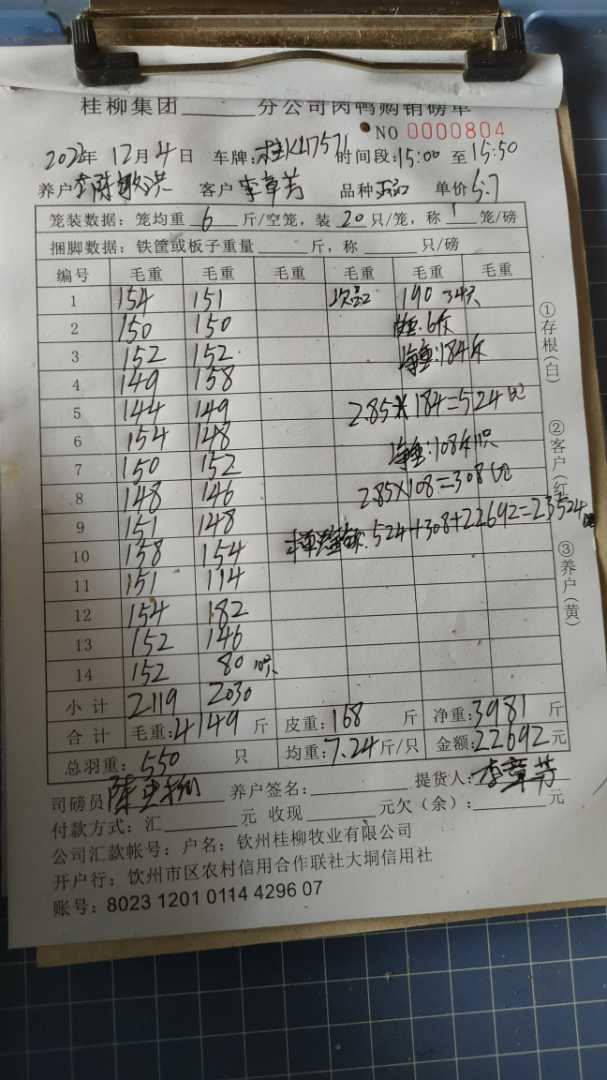 桂柳集团______分公司肉鸭购销磅单
NO 0000804
2022年 12月4日 车牌:桂K47571 时间段:15:00 至 15:50
养户 客户 李章芳 品种 正品 单价 5.7
笼装数据：笼均重 6 斤/空笼，装 20 只/笼，称 1 笼/磅
捆脚数据：铁筐或板子重量______斤，称______只/磅
编号 毛重 毛重 毛重 毛重 毛重 毛重
1 154 151 次品 190 34只
2 150 150 皮重:6斤
3 152 152 净重:184斤
4 149 158
5 144 149 2.85×184=524元
6 154 148 净重:108斤
7 150 152
8 148 146 2.85×108=308元
9 151 148
10 138 154 524+308+22692=23524
11 151 114
12 154 182
13 152 146
14 152 80 10只
小计 2119 2030
合计 毛重:4149 斤 皮重:168 斤 净重:3981 斤
总羽重：550 只 均重:7.24斤/只 金额:22692元
司磅员 养户签名：______ 提货人:李章芳
付款方式：汇______元 收现______元欠（余）:______元
公司汇款帐号：户名：钦州桂柳牧业有限公司
开户行：钦州市区农村信用合作联社大垌信用社
账号：8023 1201 0114 4296 07
①存根(白)
②客户(红)
③养户(黄)